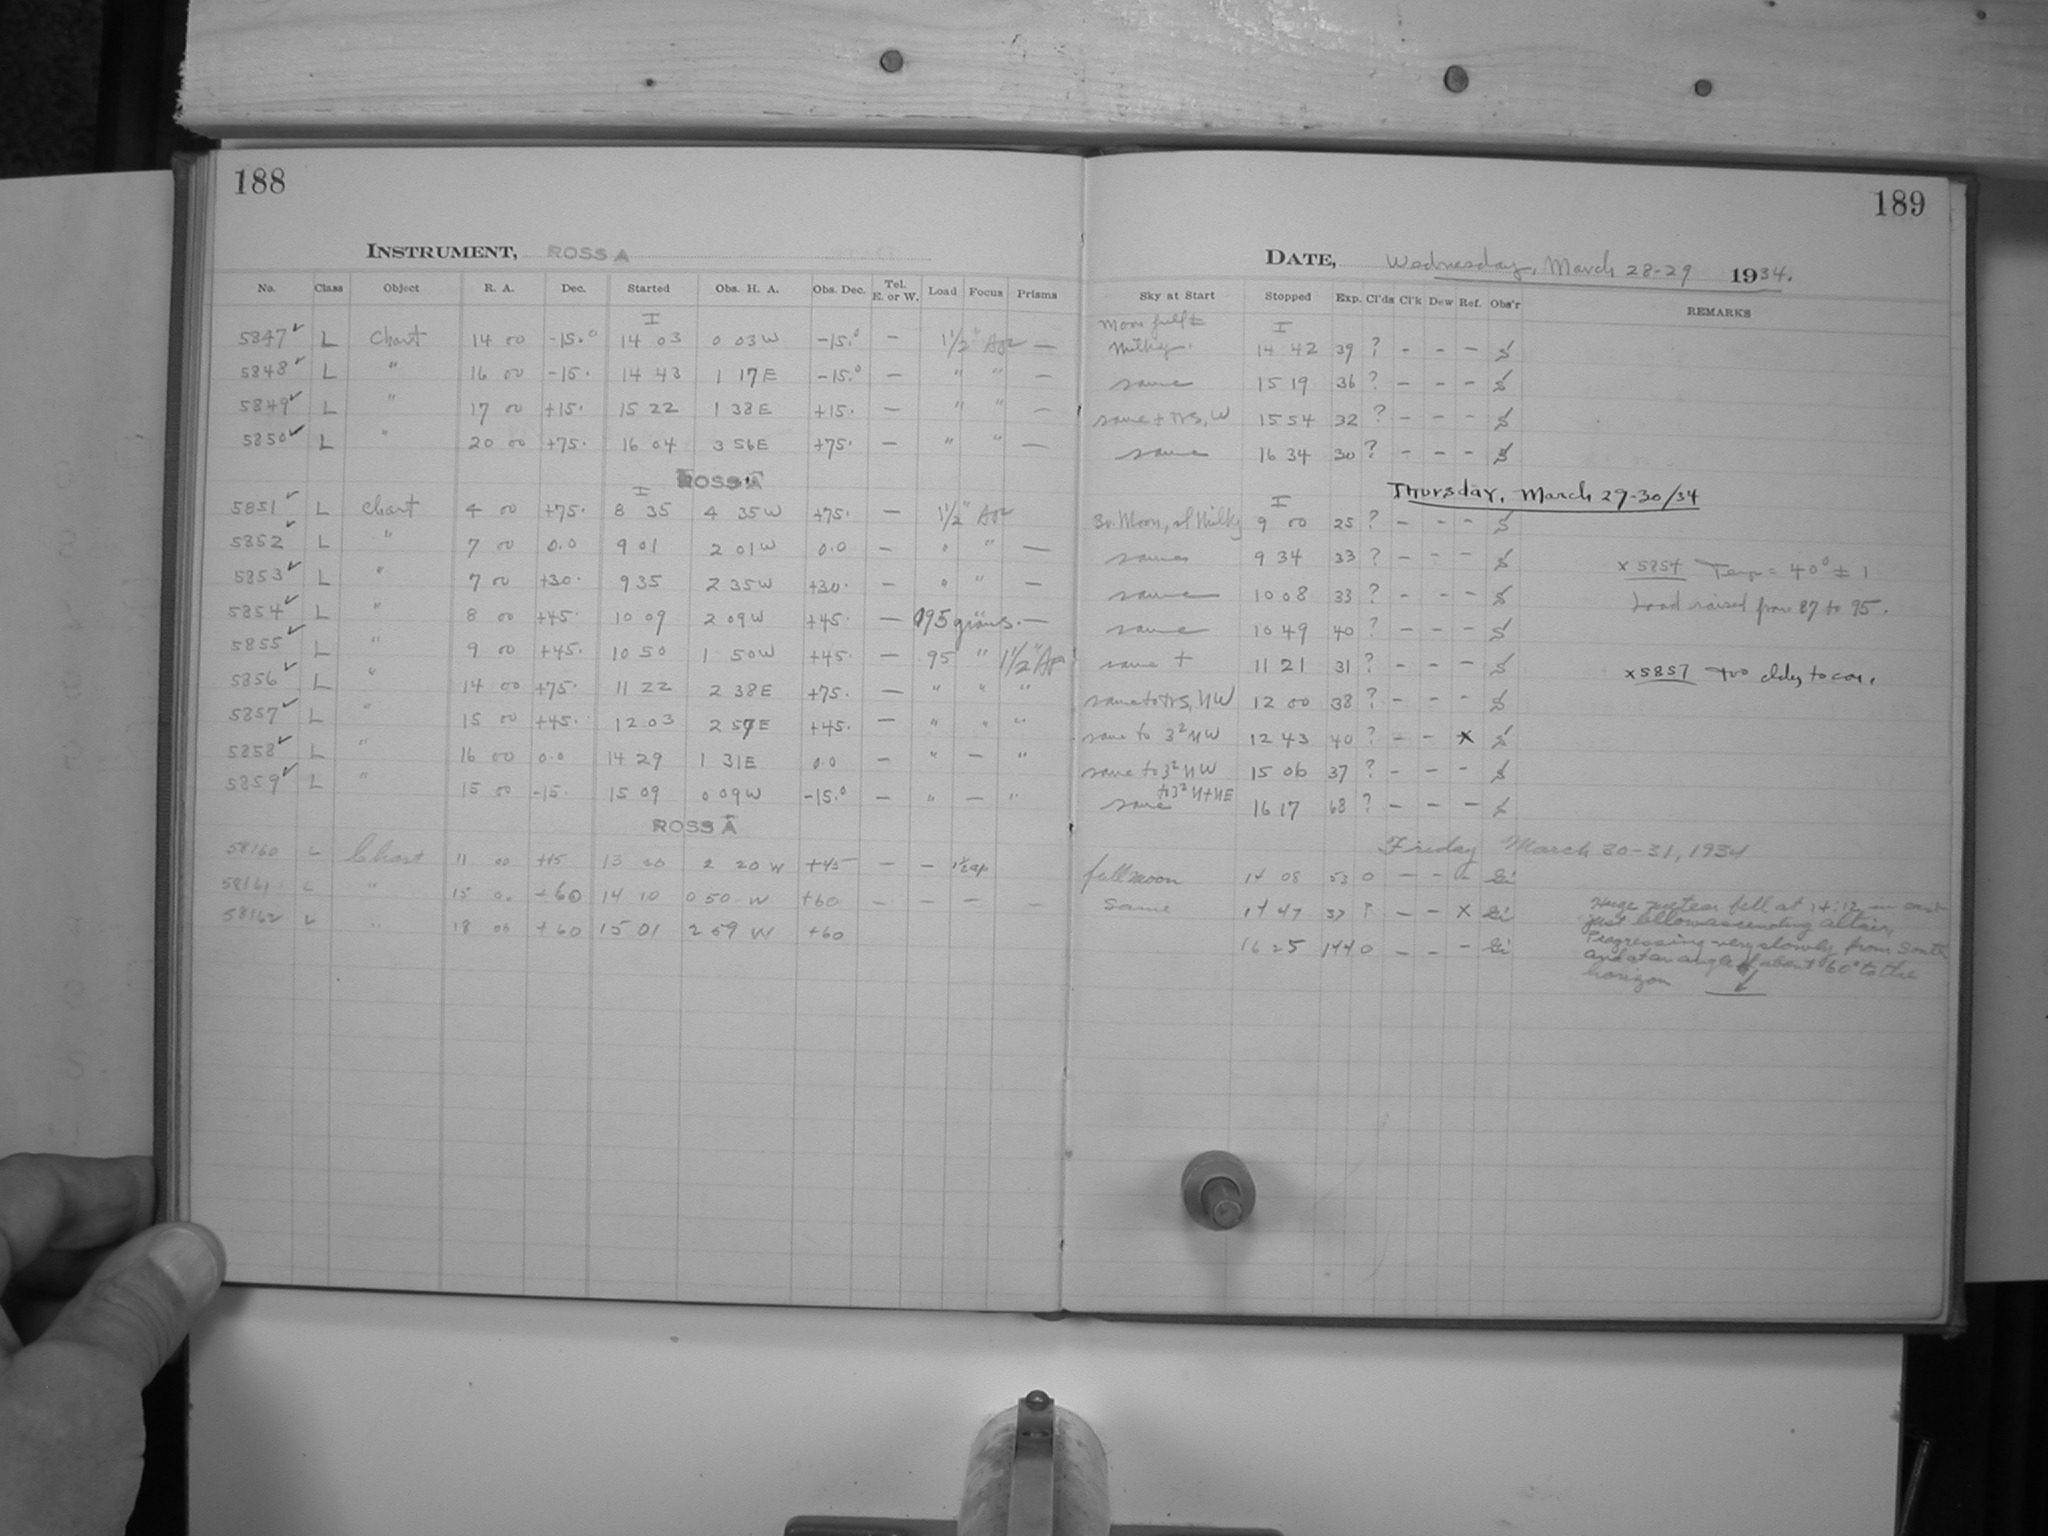 188
INSTRUMENT, ROSS A
No. Class Object R. A. Dec. Started Obs. H. A. Obs. Dec. Tel. E. or W. Load Focus Prisms
I
5847 ✓ L Chart 14 00 -15.° 14 03 0 03 W -15.° — 1½" Apr —
5848 ✓ L " 16 00 -15. 14 43 1 17 E -15.° — " " —
5849 ✓ L " 17 00 +15. 15 22 1 38 E +15. — " " —
5850 ✓ L " 20 00 +75. 16 04 3 56 E +75. — " " —
ROSS A
I
5851 ✓ L Chart 4 00 +75. 8 35 4 35 W +75. — 1½" Apr
5852 ✓ L " 7 00 0.0 9 01 2 01 W 0.0 — " " —
5853 ✓ L " 7 00 +30. 9 35 2 35 W +30. — " " —
5854 ✓ L " 8 00 +45. 10 09 2 09 W +45. — 95 —
5855 ✓ L " 9 00 +45. 10 50 1 50 W +45. — 95 " 1½" Ap
5856 ✓ L " 14 00 +75. 11 22 2 38 E +75. — " " "
5857 ✓ L " 15 00 +45. 12 03 2 57 E +45. — " " "
5858 ✓ L " 16 00 0.0 14 29 1 31 E 0.0 — " — "
5859 ✓ L " 15 00 -15. 15 09 0 09 W -15.° — " — "
ROSS A
58160 L Chart 11 00 +45 13 20 W +45 — — 1½ap
58161 L " 15 0. +60 14 10 0 50 W +60 — — — —
58162 L " 18 00 +60 15 01 2 59 W +60
189
DATE, Wednesday, March 28-29 1934.
Sky at Start Stopped Exp. Cl'ds Cl'k Dew Ref. Obs'r REMARKS
Moon full± I
Milky. 14 42 39 ? - - - S
same 15 19 36 ? - - - S
same + trs, W 15 54 32 ? - - - S
same 16 34 30 ? - - - S
Thursday, March 29-30/34
I
Moon, Milky 9 00 25 ? - - - S
same 9 34 33 ? - - - S
x 5854 Temp = 40° ± 1
same 10 08 33 ? - - - S
Load raised from 87 to 95.
same 10 49 40 ? - - - S
same + 11 21 31 ? - - - S
x 5857 too cldy to con.
same to trs, NW 12 00 38 ? - - - S
same to 3² NW 12 43 40 ? - - x S
same to 3² NW 15 06 37 ? - - - S
same to 3² N+NE 16 17 68 ? - - - S
Friday March 30-31, 1934
full moon 14 08 53 0 - - - Gi
same 14 47 37 ? - - X Gi
16 25 144 0 - - - Gi
Huge meteor fell at 14:12 in east
just below ascending altair,
Progressing very slowly from South
and at an angle of about 60° to the
horizon